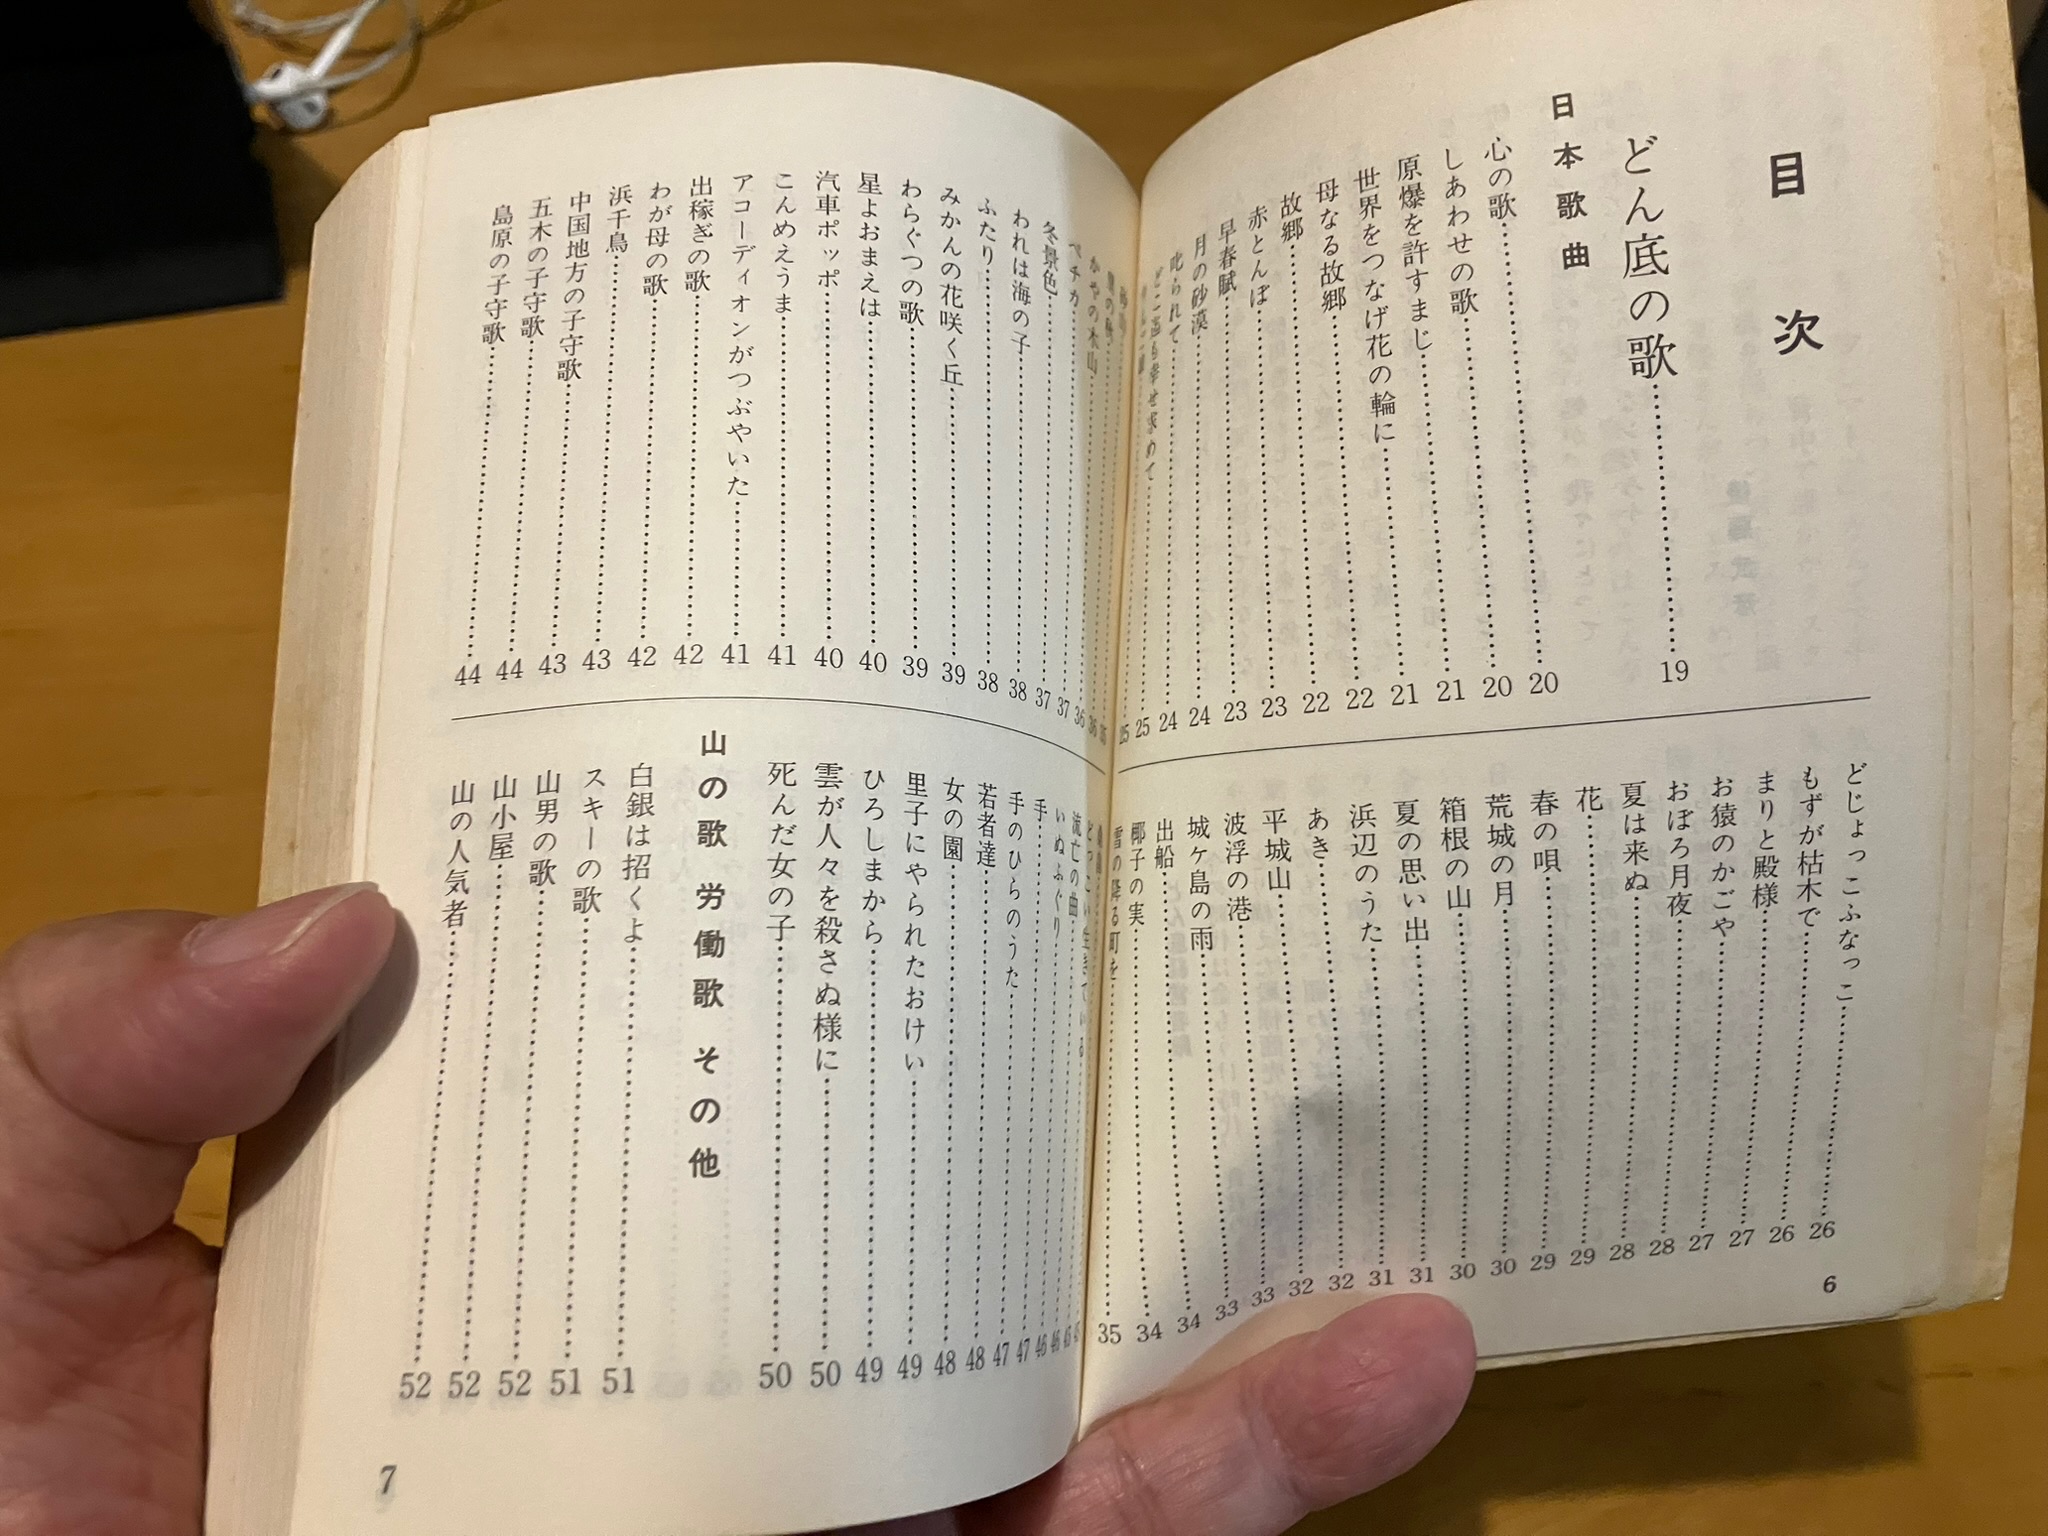 目次
どん底の歌……19
日本歌曲
心の歌……20
しあわせの歌……20
原爆を許すまじ……21
世界をつなげ花の輪に……21
母なる故郷……22
故郷……22
赤とんぼ……23
早春賦……23
月の砂漠……24
叱られて……24
どこ迄も幸せ求めて……25
25
どじょっこふなっこ……26
もずが枯木で……26
まりと殿様……27
お猿のかごや……27
おぼろ月夜……28
夏は来ぬ……28
花……29
春の唄……29
荒城の月……30
箱根の山……30
夏の思い出……31
浜辺のうた……31
あき……32
平城山……32
波浮の港……33
城ヶ島の雨……33
出船……34
椰子の実……34
雪の降る町を……35
6
かやの木山……36
ペチカ……37
冬景色……37
われは海の子……38
ふたり……38
みかんの花咲く丘……39
わらぐつの歌……39
星よおまえは……40
汽車ポッポ……40
こんめえうま……41
アコーディオンがつぶやいた……41
出稼ぎの歌……42
わが母の歌……42
浜千鳥……43
中国地方の子守歌……43
五木の子守歌……44
島原の子守歌……44
どっこい生きている……45
流亡の曲……45
いぬふぐり……46
手……46
手のひらのうた……47
若者達……47
女の園……48
里子にやられたおけい……49
ひろしまから……49
雲が人々を殺さぬ様に……50
死んだ女の子……50
山の歌 労働歌 その他
白銀は招くよ……51
スキーの歌……51
山男の歌……52
山小屋……52
山の人気者……52
7